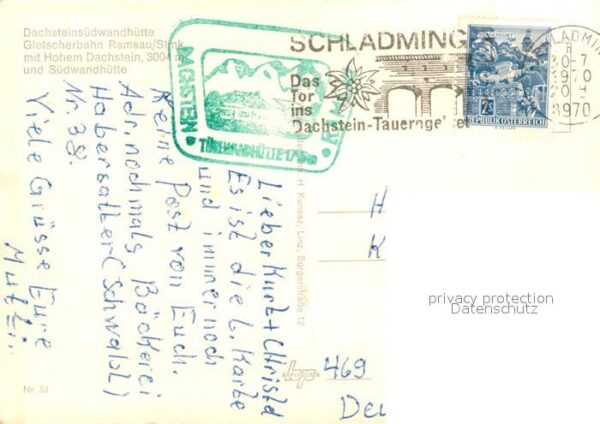 Dachsteinsüdwandhütte
Gletscherbahn Ramsau/Stmk.
mit Hohem Dachstein, 3004 m
und Südwandhütte
DACHSTEIN
SCHLADMING
Das
Tor
ins
Dachstein-Tauerngebiet
SCHLADMING
30.-7
1970
1970
2S
REPUBLIK ÖSTERREICH
Lieber Kurt + Christl
Es ist die 6. Karte
und immer noch
keine Post von Euch.
Adr. nochmals Bäckerei
Habersatter (Schwabl)
Nr. 38.
Viele Grüsse Eure
Mutti.
H. Kunasz, Linz, Bürgerstraße 12
H
K
469
Deu
privacy protection
Datenschutz
Nr. 51